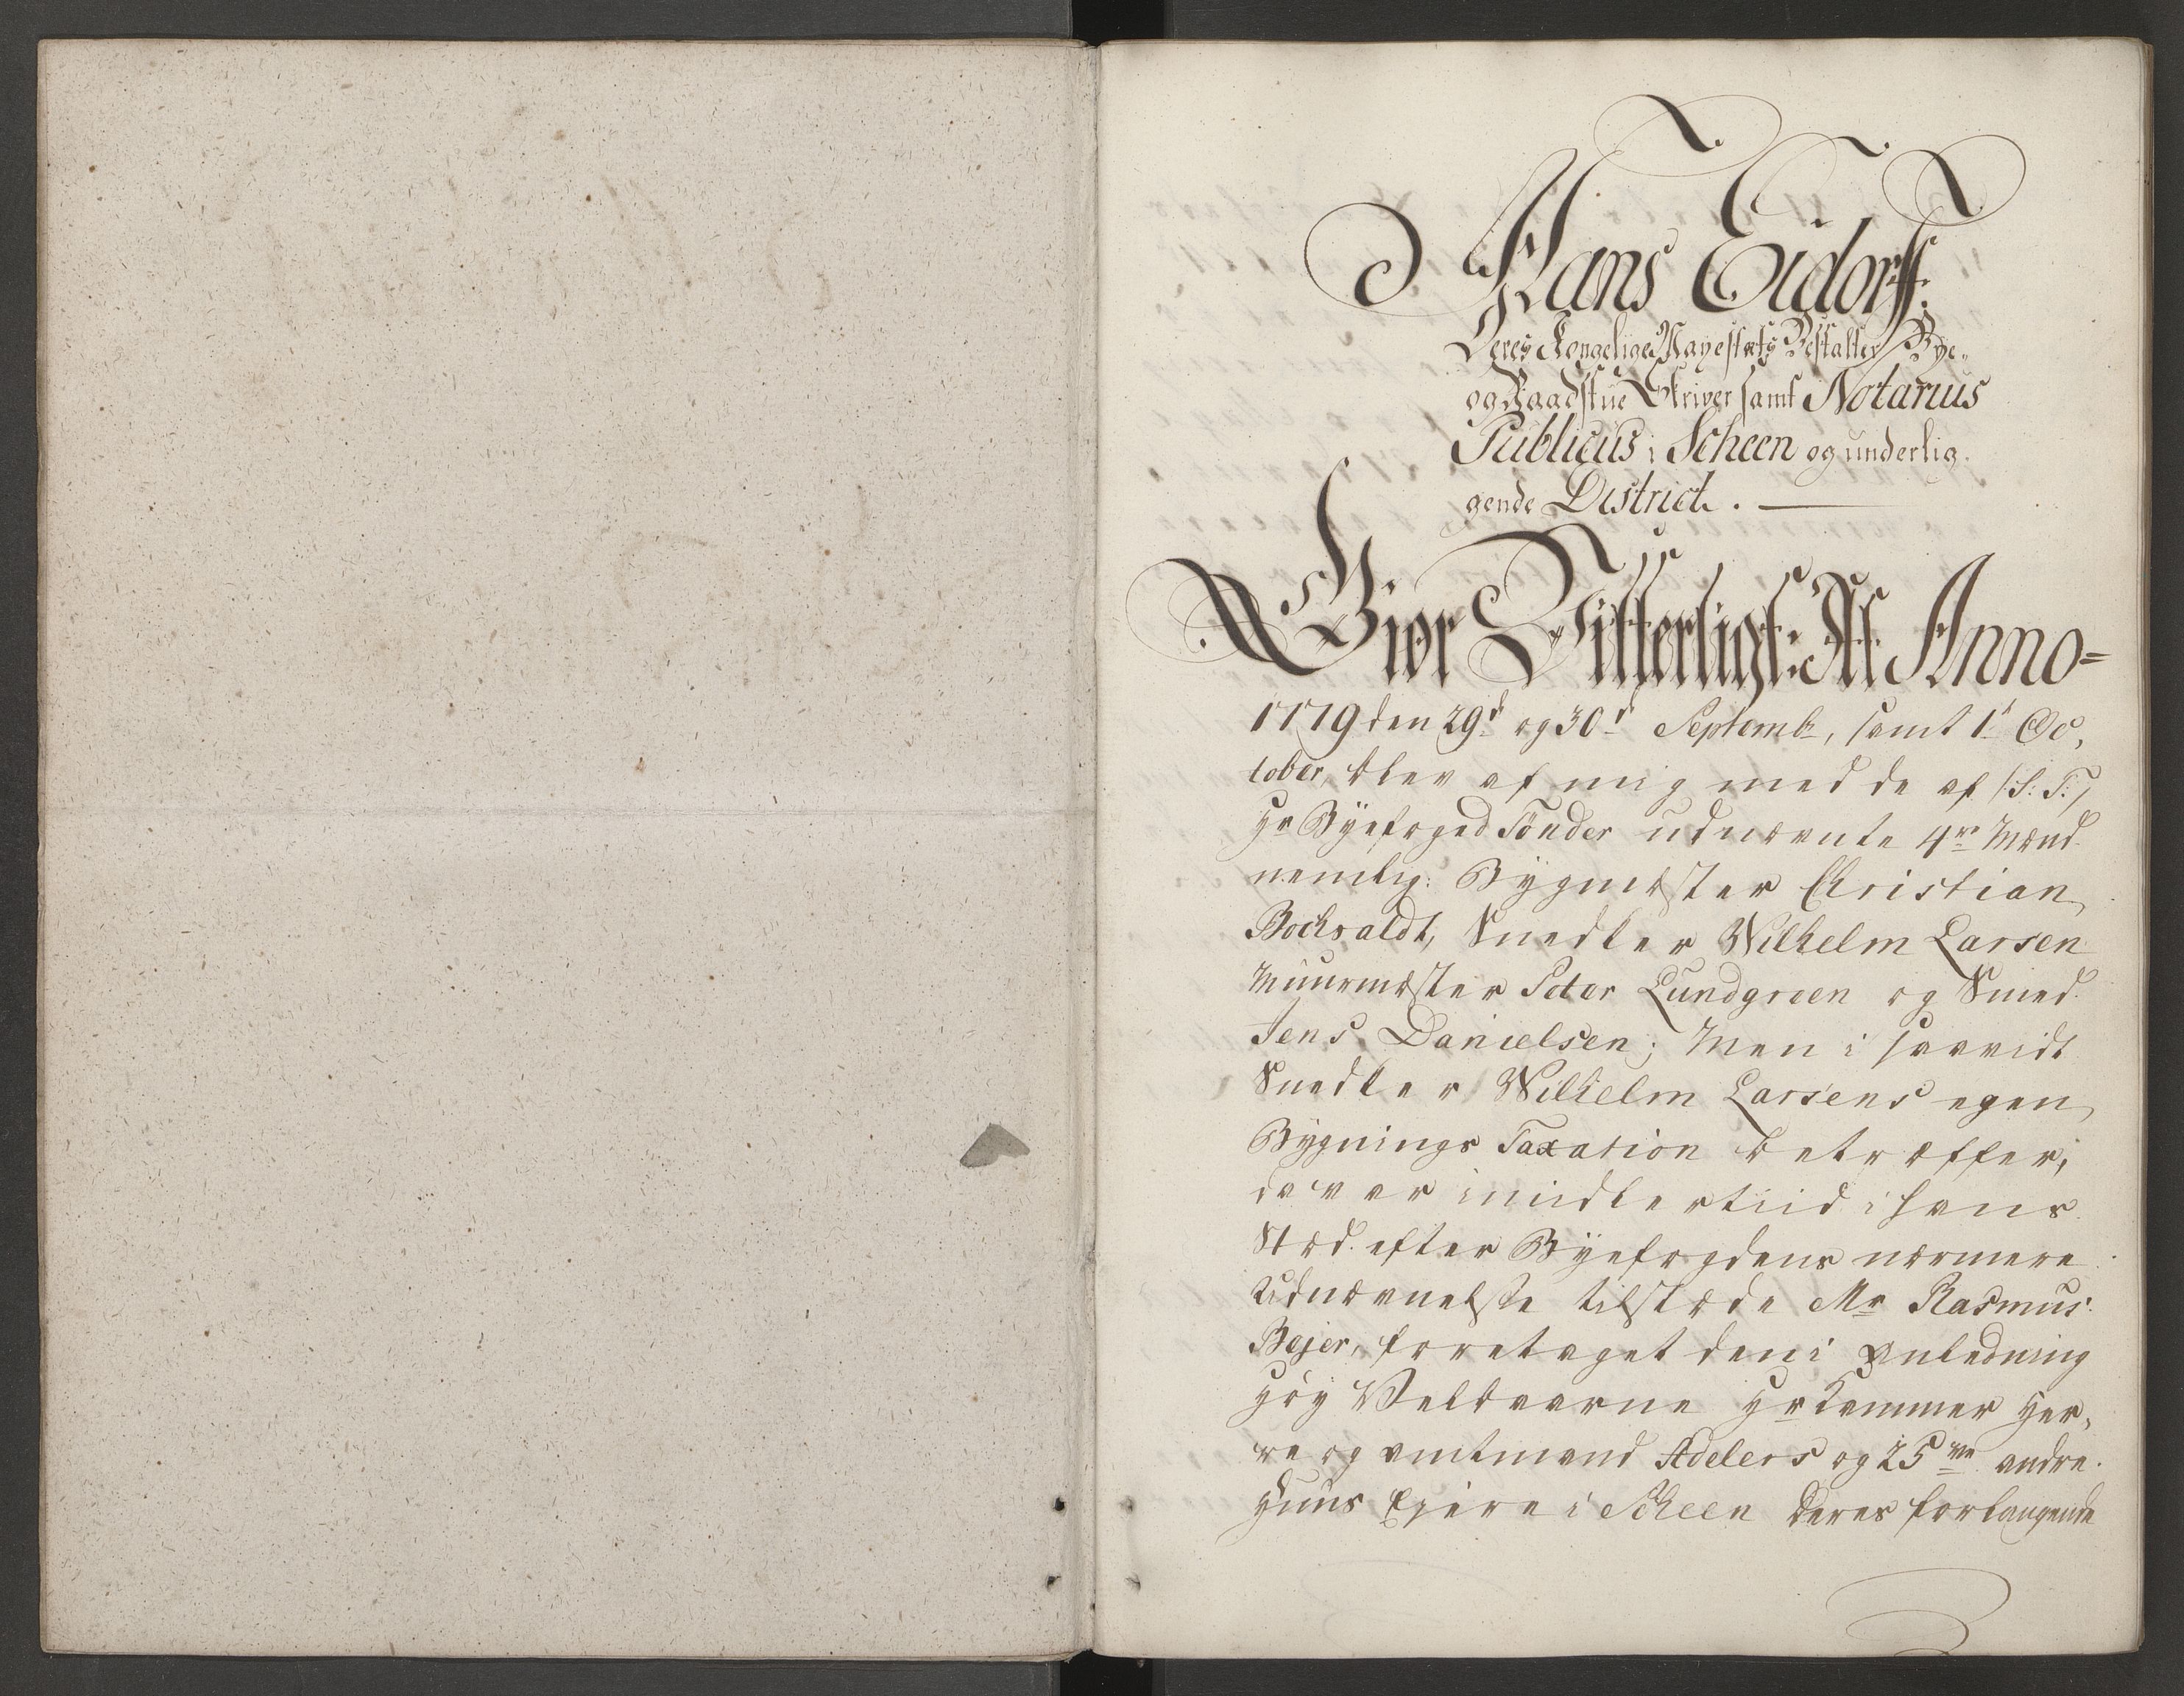 Hans Eidorff
Deres Kongelige Mayestæts Bestalter Bye-
og Raadstue Skriver samt Notarius
Publicus i Scheen og underlig-
gende District. —
Giør Vitterligt: At Anno=
1779 den 29d og 30d Septembr, samt 1t Oc,
tober, blev af mig med de af /:S: T:/
Hr Byefoged Tönder udnævnte 4re Mænd
nemlig: Bygmæster Christian
Bochvaldt, Snedker Wilhelm Larsen
Muurmæster Peter Lundgreen og Smed
Jens Danielsen; Men i saavidt
Snedker Wilhelm Larsens egen
Bygnings Taxation betræffer,
da var imidlertiid i hans
Stæd efter Byefogdens nærmere
Udnævnelse tilstæde Mr Rasmus
Bejer, foretaget den i Anledning
Høy Velbaarne Hr Kammer Her,
re og Amtmand Adelers og 25ve andre
Huus Ejere i Scheen deres forlangende